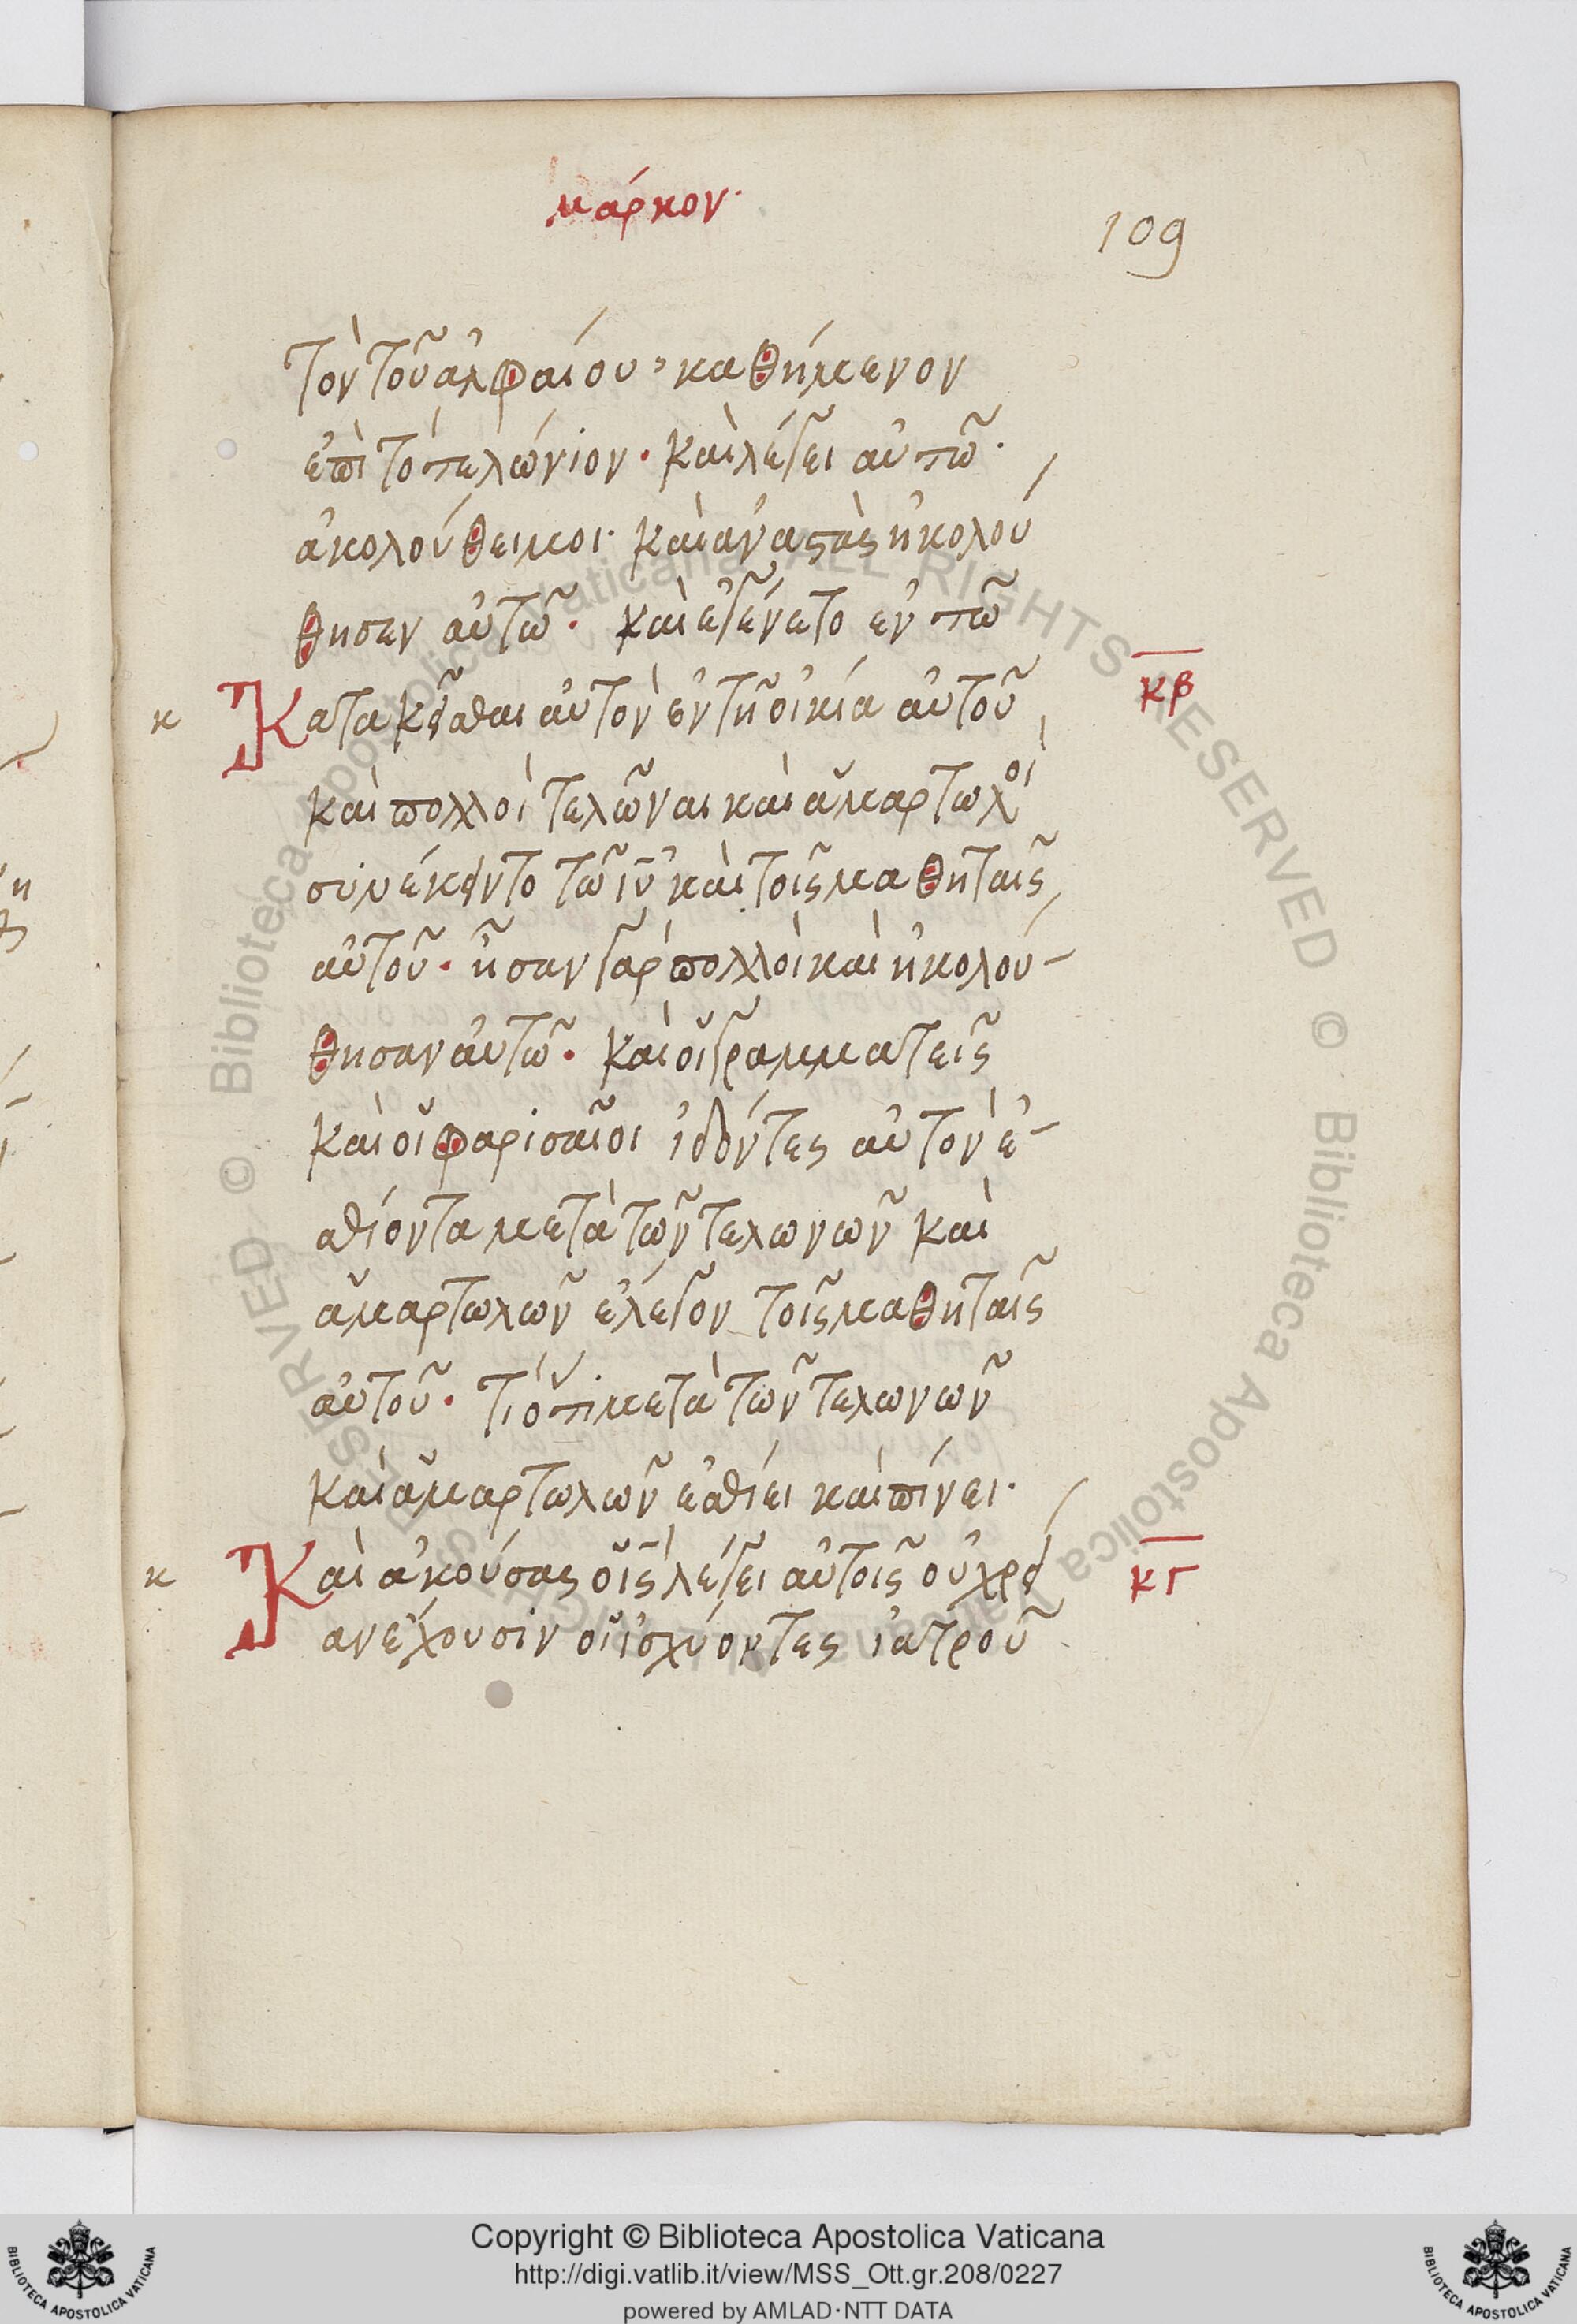 μάρκον·
109
τὸν τοῦ ἀλφαίου, καθήμενον
ἐπὶ τὸ τελώνιον· καὶ λέγει αὐτῶ·
ἀκολούθει μοι· καὶ ἀναστὰς ἠκολού
θησεν αὐτῶ· καὶ ἐγένετο ἐν τῶ
κ Κατακεῖσθαι αὐτὸν ἐν τῆ οἰκία αὐτοῦ κβ
καὶ πολλοὶ τελῶναι καὶ ἁμαρτωλοὶ
συνέκειντο τῶ ιυ καὶ τοῖς μαθηταῖς
αὐτοῦ· ἦσαν γὰρ πολλοὶ καὶ ἠκολού-
θησαν αὐτῶ· καὶ οἱ γραμματεῖς
καὶ οἱ φαρισαῖοι ἰδόντες αὐτὸν ἐ-
σθίοντα μετὰ τῶν τελωνῶν καὶ
ἁμαρτωλῶν ἔλεγον τοῖς μαθηταῖς
αὐτοῦ· τί ὅτι μετὰ τῶν τελωνῶν
καὶ ἁμαρτωλῶν ἐσθίει καὶ πίνει·
κ Καὶ ἀκούσας ὁ ις λέγει αὐτοῖς οὐ χρεί κγ
αν ἔχουσιν οἱ ἰσχύοντες ἰατροῦ
Copyright © Biblioteca Apostolica Vaticana
http://digi.vatlib.it/view/MSS_Ott.gr.208/0227
powered by AMLAD·NTT DATA
BIBLIOTECA APOSTOLICA VATICANA
BIBLIOTECA APOSTOLICA VATICANA